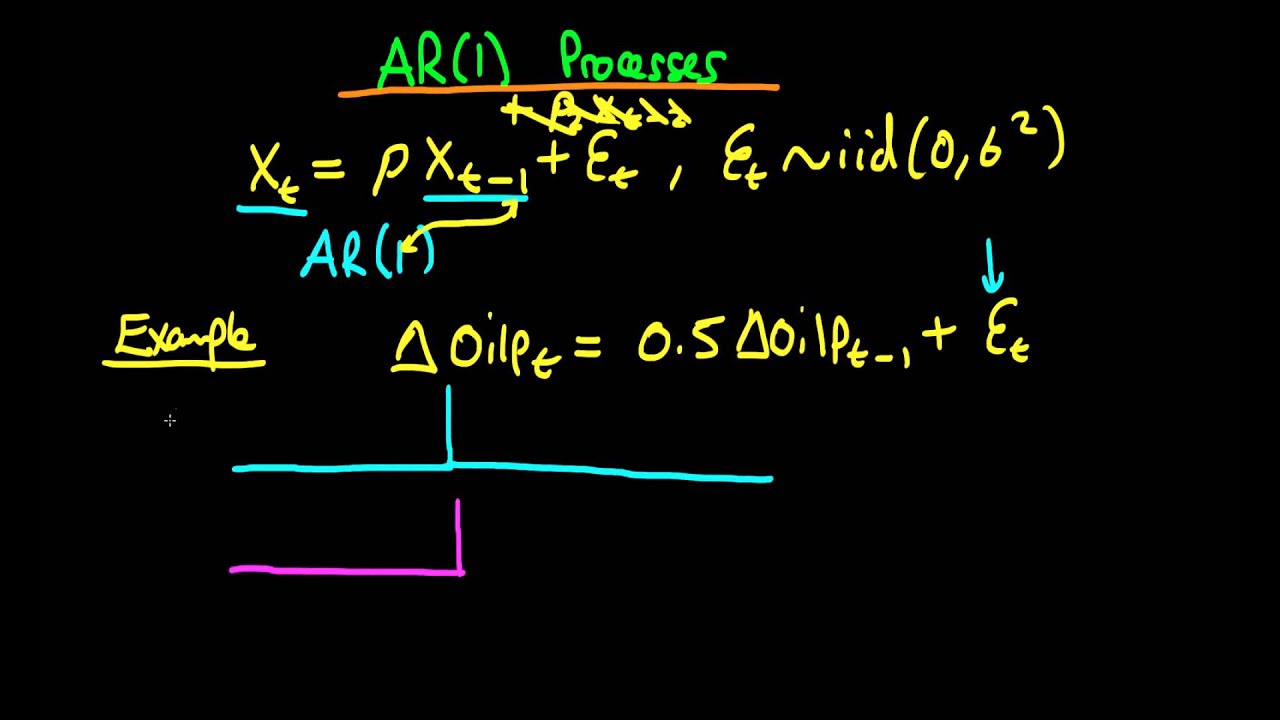 AR(1) Processes
Xₜ = ρXₜ₋₁ + Ɛₜ , Ɛₜ ~ iid(0, б²)
AR(1)
Example ΔOilpₜ = 0.5ΔOilpₜ₋₁ + Ɛₜ